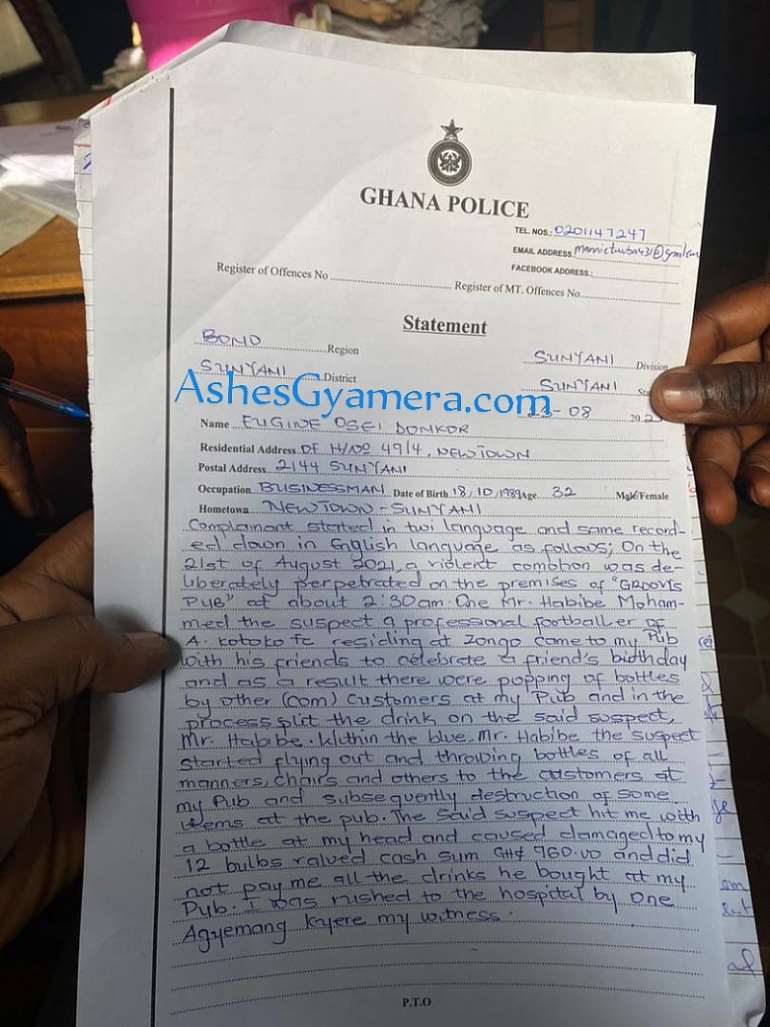 GHANA POLICE
TEL. NOS: 0201147247
EMAIL ADDRESS
FACEBOOK ADDRESS:
Register of Offences No
Register of MT. Offences No
Statement
BONO Region
SUNYANI Division
SUNYANI District
SUNYANI
AshesGyamera.com
-08 202
Name EUGINE OSEI DONKOR
Residential Address OF H/NO 49/4, NEWTOWN
Postal Address 2144 SUNYANI
Occupation BUSINESSMAN Date of Birth 18/10/1989 Age 32 Male/Female
Hometown NEWTOWN-SUNYANI
Complainant stated in twi language and same record-
ed down in English language as follows; On the
21st of August 2021, a violent combhon was de-
liberately perpetrated on the premises of "GROOVIS
PUB" at about 2:30am. One Mr. Habibe Moham-
med the suspect a professional footballer of
A. Kotoko fc residing at Zongo came to my Pub
with his friends to celebrate a friend's birthday
and as a result there were popping of bottles
by other (com) customers at my Pub and in the
process split the drink on the said suspect,
Mr. Habibe. Within the blue, Mr. Habibe the suspect
started flying out and throwing bottles of all
manners, chairs and others to the customers at
my Pub and subsequently destruction of some
items at the pub. The said suspect hit me with
a bottle at my head and caused damaged to my
12 bulbs valued cash sum GH¢ 960.00 and did
not pay me all the drinks he bought at my
Pub. I was rushed to the hospital by one
Agyemang Kyere my witness.
P.T.O